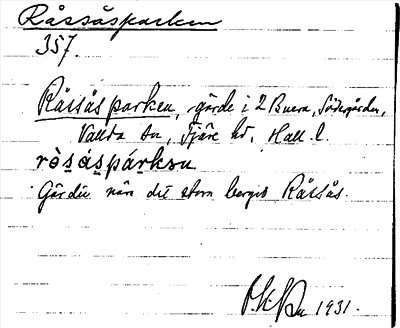 Råssåsparken
357.
Råssåsparken, gärde i 2 Buera, Södergården,
Vallda sn, Fjäre hd, Hall. l.
ròsåspárkən
Gärdet nära det stora berget Råssås.
1931.